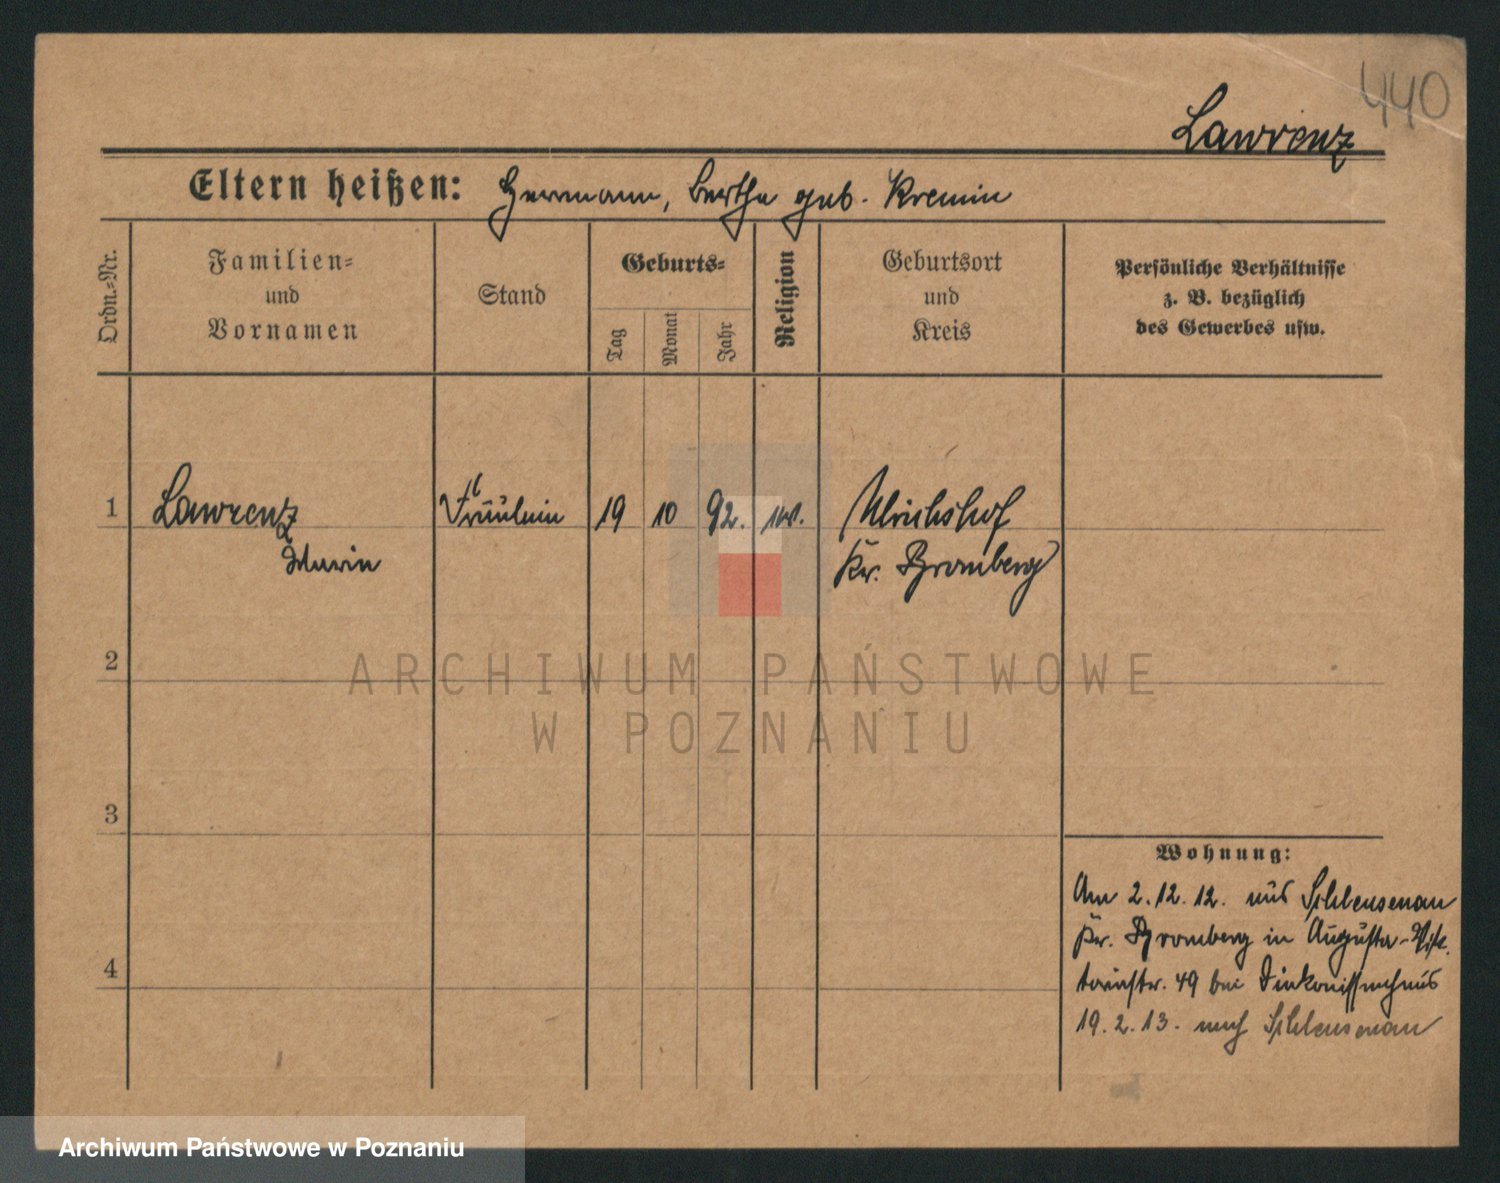 440
Lawrenz
Eltern heißen: Hermann, Bertha geb. Kremin
Ordn.-Nr.
Familien-
und
Vornamen
Stand
Geburts-
Tag
Monat
Jahr
Religion
Geburtsort
und
Kreis
Persönliche Verhältnisse
z. B. bezüglich
des Gewerbes usw.
1 Lawrenz Fräulein 19 10 92. ev. Ulrichshof
Marie Kr. Bromberg
2
3
4
Wohnung:
Am 2.12.12. aus Schleusenau
Kr. Bromberg in Augusta-Vik
toriastr. 49 bei Diakonissenhaus
19.2.13. nach Schleusenau
ARCHIWUM PAŃSTWOWE
W POZNANIU
Archiwum Państwowe w Poznaniu